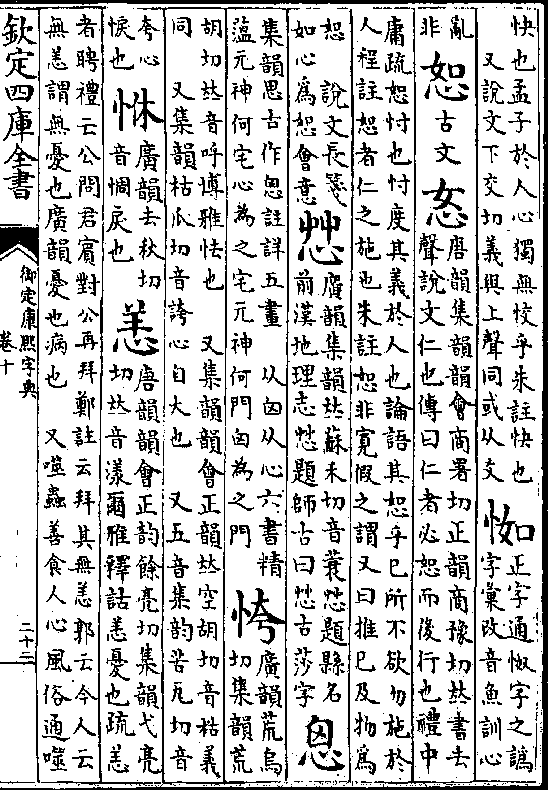 快也孟子於人心獨無恔乎朱註快也
又說文下交切義與上聲同或从交
正字通怓字之譌
字彙改音魚訓心
亂
非
恕古文㣽
唐韻集韻韻會商署切正韻商豫切𠀤書去
聲說文仁也傳曰仁者必恕而後行也禮中
庸疏恕忖也忖度其義於人也論語其恕乎已所不欲勿施於
人程註恕者仁之施也朱註恕非寬假之謂又曰推已及物爲
恕 說文長箋
如心爲恕會意
廣韻集韻𠀤蘇禾切音蓑 題縣名
前漢地理志 題師古曰 古莎字
恖
集韻思古作恖註詳五畫 从囟从心六書精
薀元神何宅心為之宅元神何門囟為之門
恗
廣韻荒烏
切集韻荒
胡切𠀤音呼博雅怯也 又集韻韻會正韻𠀤空胡切音枯義
同 又集韻枯瓜切音誇心自大也 又五音集韵苦瓦切音
夸心
悷也
恘
廣韻去秋切
音惆戾也
恙
唐韻韻會正韵餘亮切集韻弋亮
切𠀤音漾爾雅釋詁恙憂也疏恙
者聘禮云公問君賓對公再拜鄭註云拜其無恙郭云今人云
無恙謂無憂也廣韻憂也病也 又噬蟲善食人心風俗通噬
欽定四庫全書
御定康熙字典
卷十
二十二